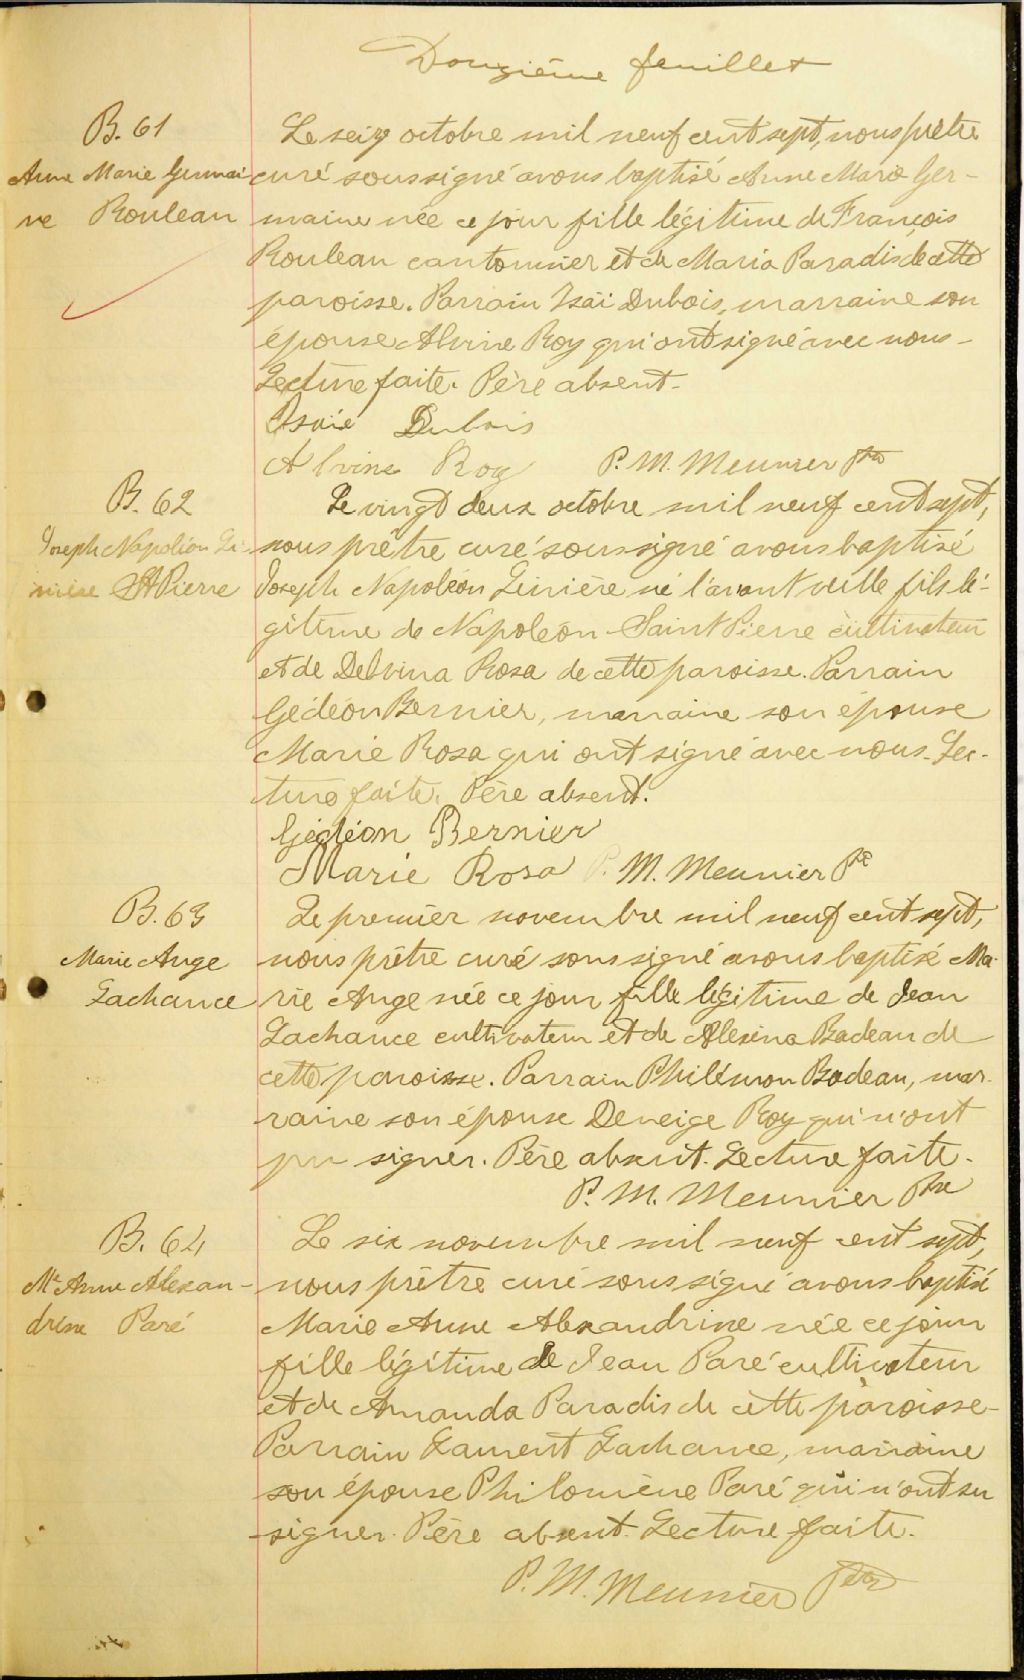 Douzième feuillet
B. 61
Anne Marie Germai-
ne Rouleau
Le seize octobre mil neuf cent sept, nous prêtre
curé soussigné avons baptisé Anne Marie Ger-
maine née ce jour fille légitime de François
Rouleau cantonnier et de Maria Paradis de cette
paroisse. Parrain Isaï Dubois, marraine son
épouse Alvine Roy qui ont signé avec nous-
Lecture faite. Père absent-
Isaïe Dubois
Alvine Roy P. M. Meunier Ptre
B. 62
Joseph Napoléon Li-
nière St Pierre
Le vingt deux octobre mil neuf cent sept,
nous prêtre curé soussigné avons baptisé
Joseph Napoléon Linière né l'avant veille fils lé-
gitime de Napoléon Saint Pierre cultivateur
et de Delvina Rosa de cette paroisse. Parrain
Gédéon Bernier, marraine son épouse
Marie Rosa qui ont signé avec nous. Lec-
ture faite. Père absent.
Gédéon Bernier
Marie Rosa P. M. Meunier Ptre
B. 63
Marie Ange
Lachance
Le premier novembre mil neuf cent sept,
nous prêtre curé soussigné avons baptisé Ma-
rie Ange née ce jour fille légitime de Jean
Lachance cultivateur et de Alexina Badeau de
cette paroisse. Parrain Philémon Badeau, mar-
raine son épouse Deneige Roy qui n'ont
pu signer. Père absent. Lecture faite.
P. M. Meunier Ptre
B. 64
Mie Anne Alexan-
drine Paré
Le six novembre mil neuf cent sept,
nous prêtre curé soussigné avons baptisé
Marie Anne Alexandrine née ce jour
fille légitime de Jean Paré cultivateur
et de Amanda Paradis de cette paroisse-
Parrain Laurent Lachance, marraine
son épouse Philomène Paré qui n'ont su
signer. Père absent. Lecture faite.
P. M. Meunier Ptre